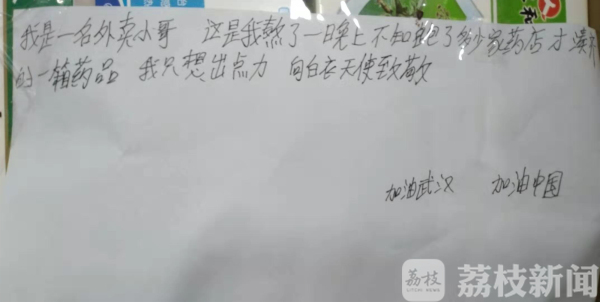 我是一名外卖小哥 这是我熬了一日晚上不知跑了多少家药店才凑齐
的一箱药品 我只想出点力 向白衣天使致敬
加油武汉 加油中国
荔枝
LITCHI NEWS
荔枝新闻